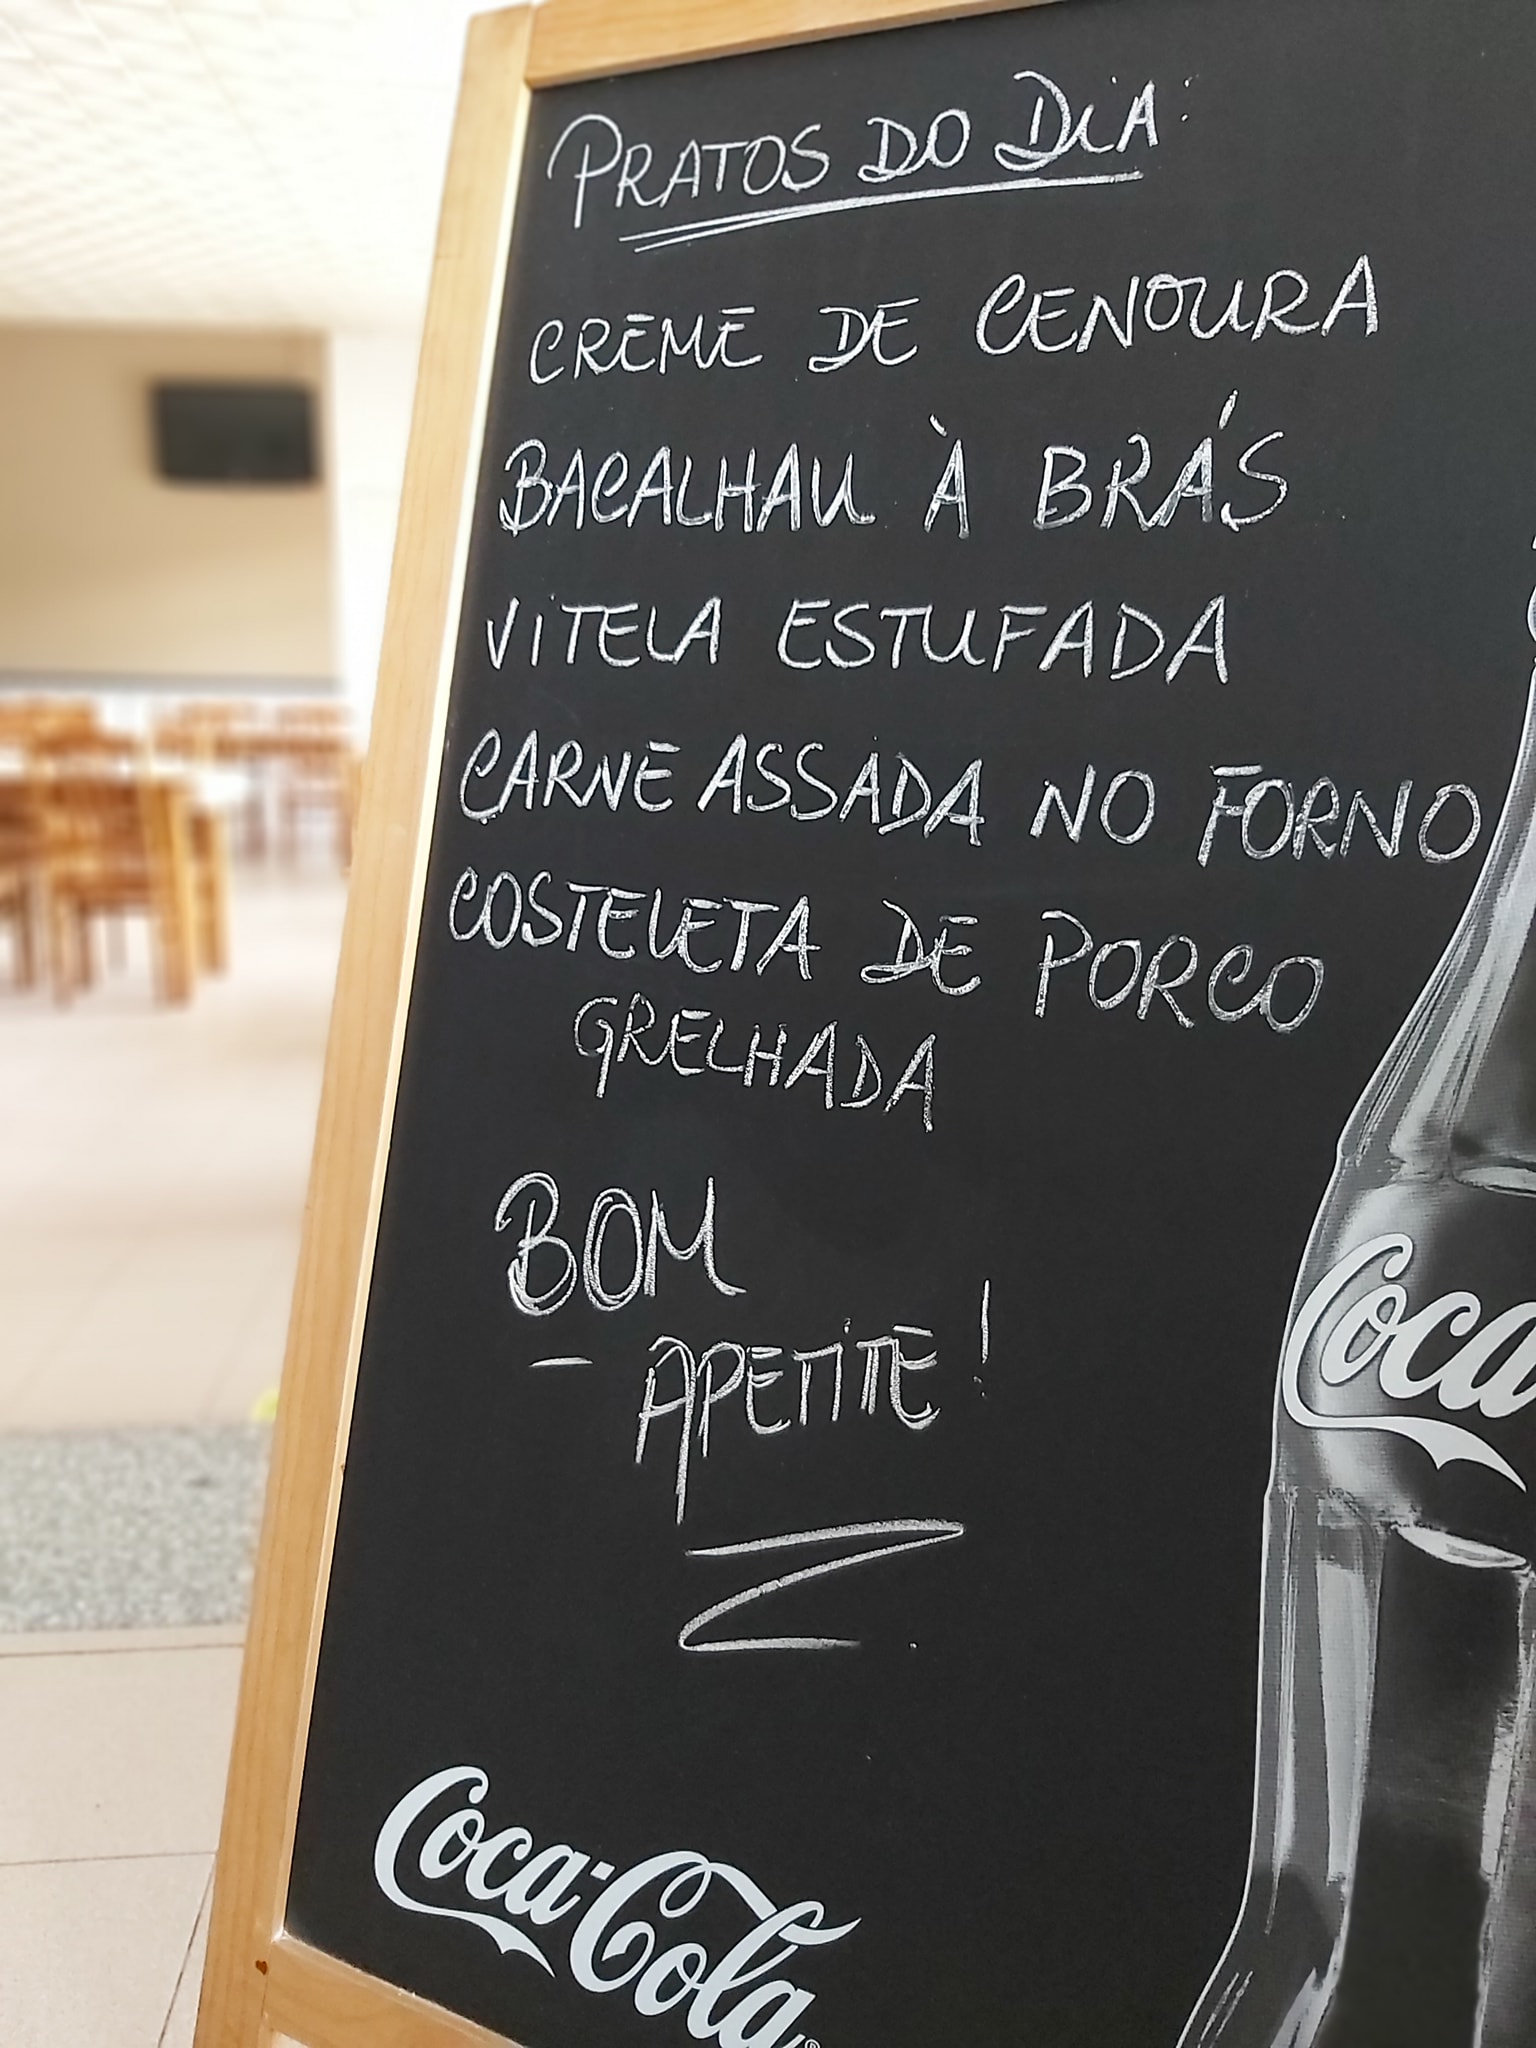 PRATOS DO DIA:
CREME DE CENOURA
BACALHAU À BRÁS
VITELA ESTUFADA
CARNE ASSADA NO FORNO
COSTELETA DE PORCO
GRELHADA
BOM
- APETITE!
Coca
Coca-Cola